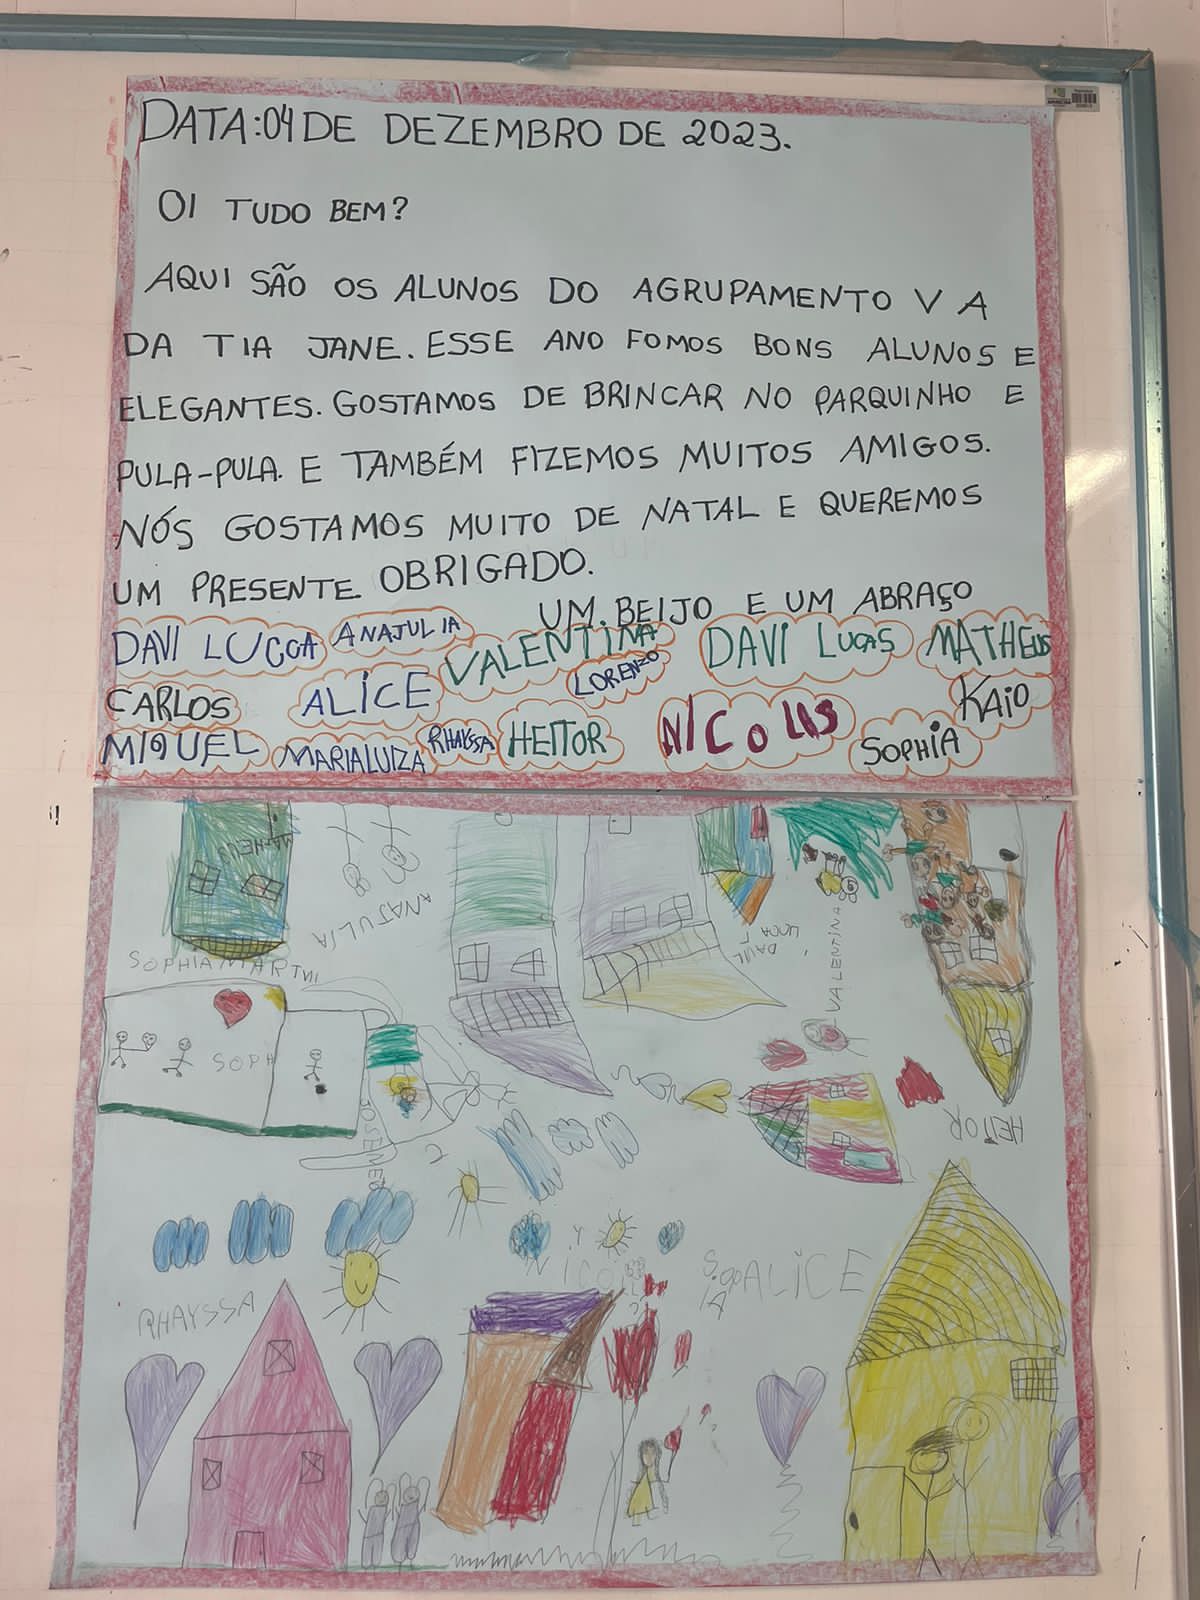 DATA:04 DE DEZEMBRO DE 2023.
OI TUDO BEM?
AQUI SÃO OS ALUNOS DO AGRUPAMENTO V A
DA TIA JANE. ESSE ANO FOMOS BONS ALUNOS E
ELEGANTES. GOSTAMOS DE BRINCAR NO PARQUINHO E
PULA-PULA. E TAMBÉM FIZEMOS MUITOS AMIGOS.
NÓS GOSTAMOS MUITO DE NATAL E QUEREMOS
UM PRESENTE. OBRIGADO.
UM. BEIJO E UM ABRAÇO
DAVI LUCCA ANAJULIA VALENTINA DAVI LUCAS MATHEUS
CARLOS ALICE LORENZO KAIO
MIQUEL MARIALUIZA RHAYSSA HEITOR NICOLAS SOPHIA
MATHEUS
ANAJULIA
VALENTINA
SOPHIAMARTINI
SOPH
HEITOR
NICO
RHAYSSA
ALICE